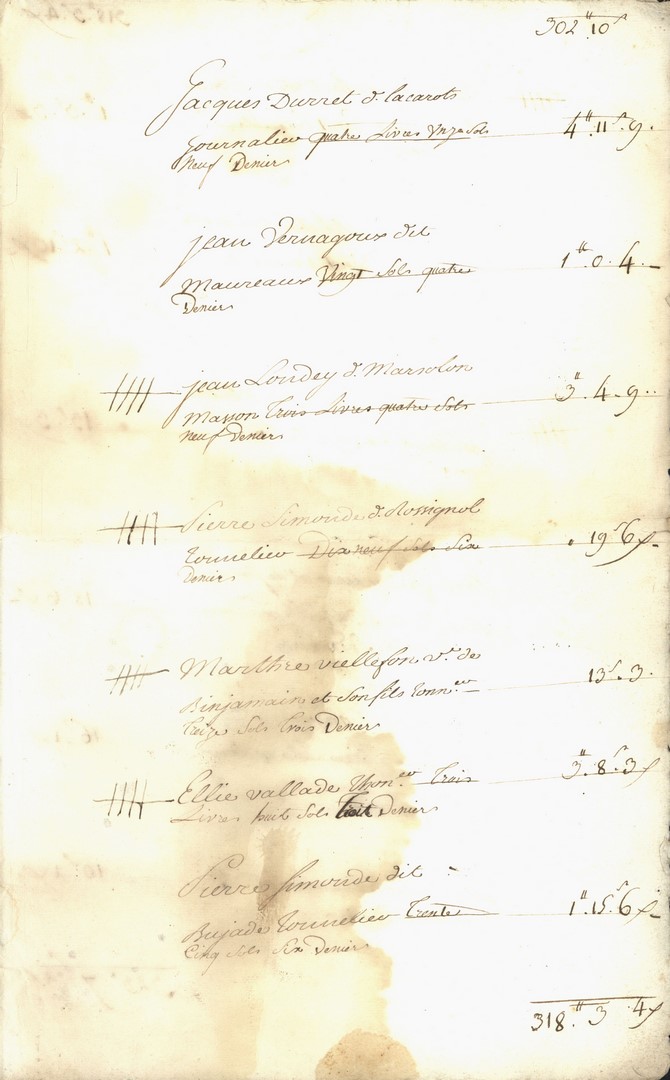 302 ₶ 10 s
Jacques Durret d. Lacarots
journalier quatre Livres Unze sols 4 ₶ 11 s 9.
Neuf Denier
jean Vernagoux dit
Maureaux Vingt sols quatre 1 ₶ 0. 4.
Denier
jean Londey d. Marsolon
Masson Trois Livres quatre sols 3 ₶ 4. 9.
neuf Denier
Pierre Simonde d. Rossignol
Tounelier Dix neuf sols Six 19 s 6 d
Denier
Marthre viellefon v.ve de
Binjamain et son fils tonn.er 13 s 3.
treize sols trois Denier
Ellie vallade Thon.er Trois 3 ₶ 8 s 3 d
Livres huit sols Trois Denier
Pierre Simonde dit
Bujade Tounelier Trente 1 ₶ 15 s 6 d
Cinq sols Six Denier
318 ₶ 3 4 d